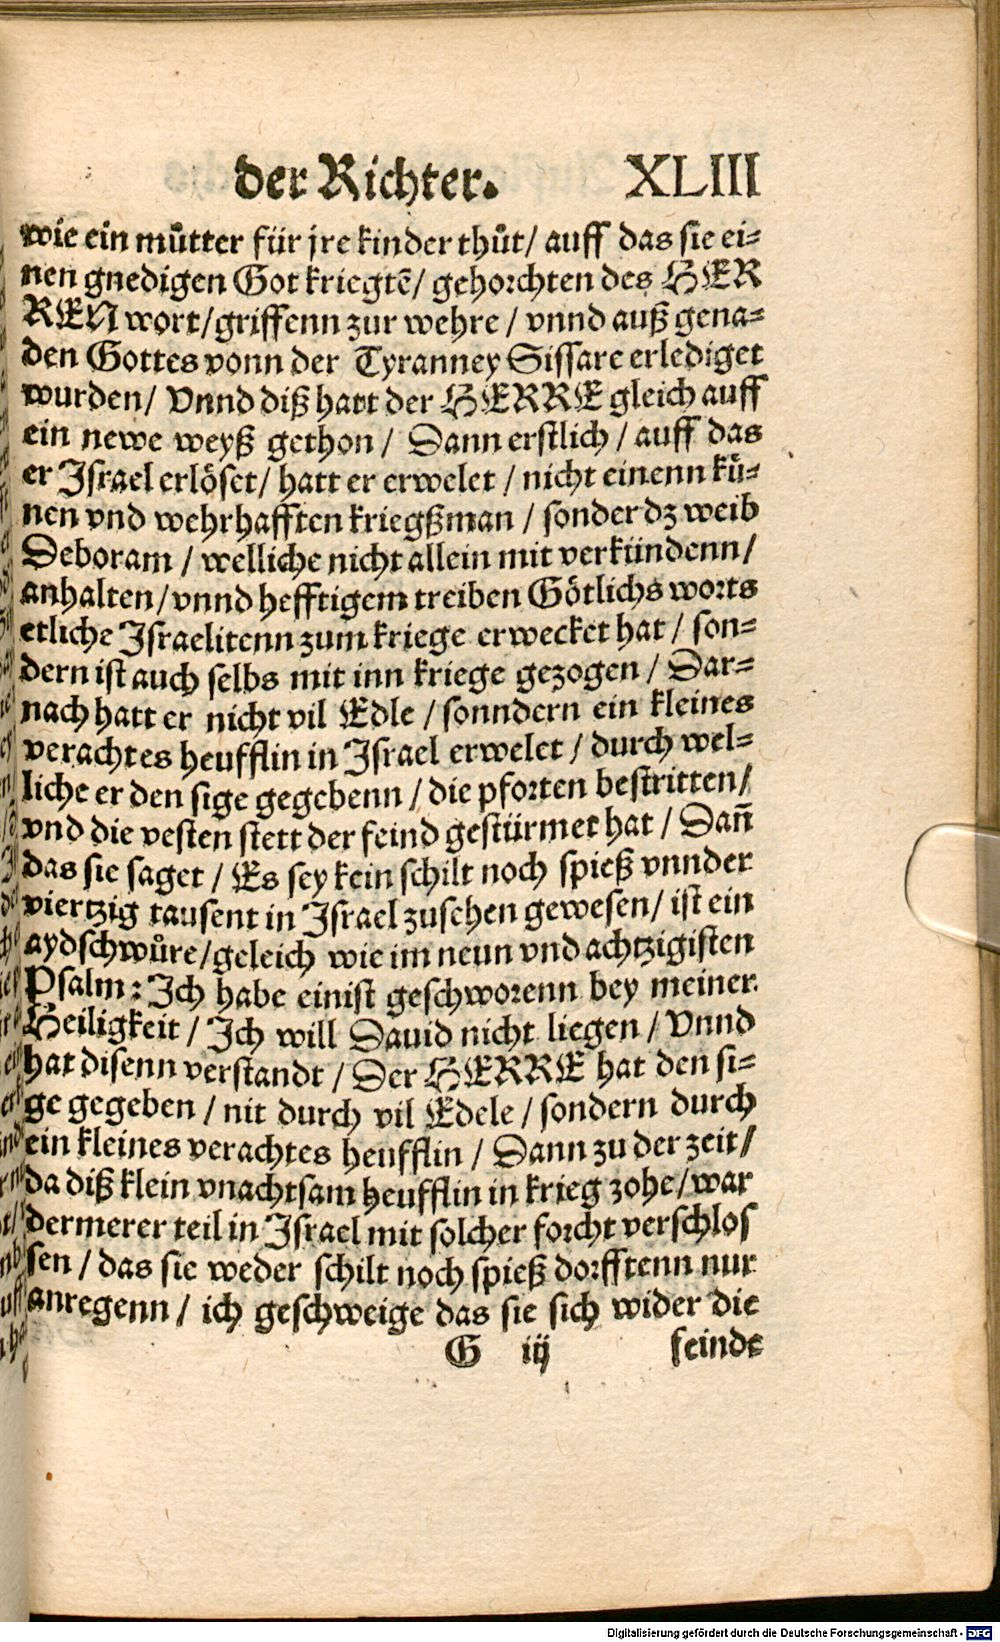 der Richter. XLIII
wie ein můtter für jre kinder thůt/ auff das sie ei⸗
nen gnedigen Got kriegtē/ gehorchten des HER
REN wort/griffenn zur wehre / vnnd auß gena⸗
den Gottes vonn der Tyranney Sissare erlediget
wurden/ Vnnd diß hatt der HERRE gleich auff
ein newe weyß gethon/ Dann erstlich / auff das
er Israel erlöset/ hatt er erwelet / nicht einenn kü⸗
nen vnd wehrhafften kriegßman / sonder dz weib
Deboram / welliche nicht allein mit verkündenn/
anhalten/vnnd hefftigem treiben Götlichs worts
etliche Israelitenn zum kriege erwecket hat / son⸗
dern ist auch selbs mit inn kriege gezogen / Dar⸗
nach hatt er nicht vil Edle / sonndern ein kleines
verachtes heufflin in Israel erwelet / durch wel⸗
liche er den sige gegebenn / die pforten bestritten/
vnd die vesten stett der feind gestürmet hat / Dañ
das sie saget / Es sey kein schilt noch spieß vnnder
viertzig tausent in Israel zusehen gewesen/ ist ein
aydschwůre/geleich wie im neun vnd achtzigisten
Psalm: Ich habe einist geschworenn bey meiner
Heiligkeit / Ich will Dauid nicht liegen / Vnnd
hat disenn verstandt / Der HERRE hat den si⸗
ge gegeben / nit durch vil Edele / sondern durch
ein kleines verachtes heufflin / Dann zu der zeit/
da diß klein vnachtsam heufflin in krieg zohe/war
dermerer teil in Israel mit solcher forcht verschlos
sen / das sie weder schilt noch spieß dorfftenn nur
anregenn / ich geschweige das sie sich wider die
G iij feinde
Digitalisierung gefördert durch die Deutsche Forschungsgemeinschaft - DFG